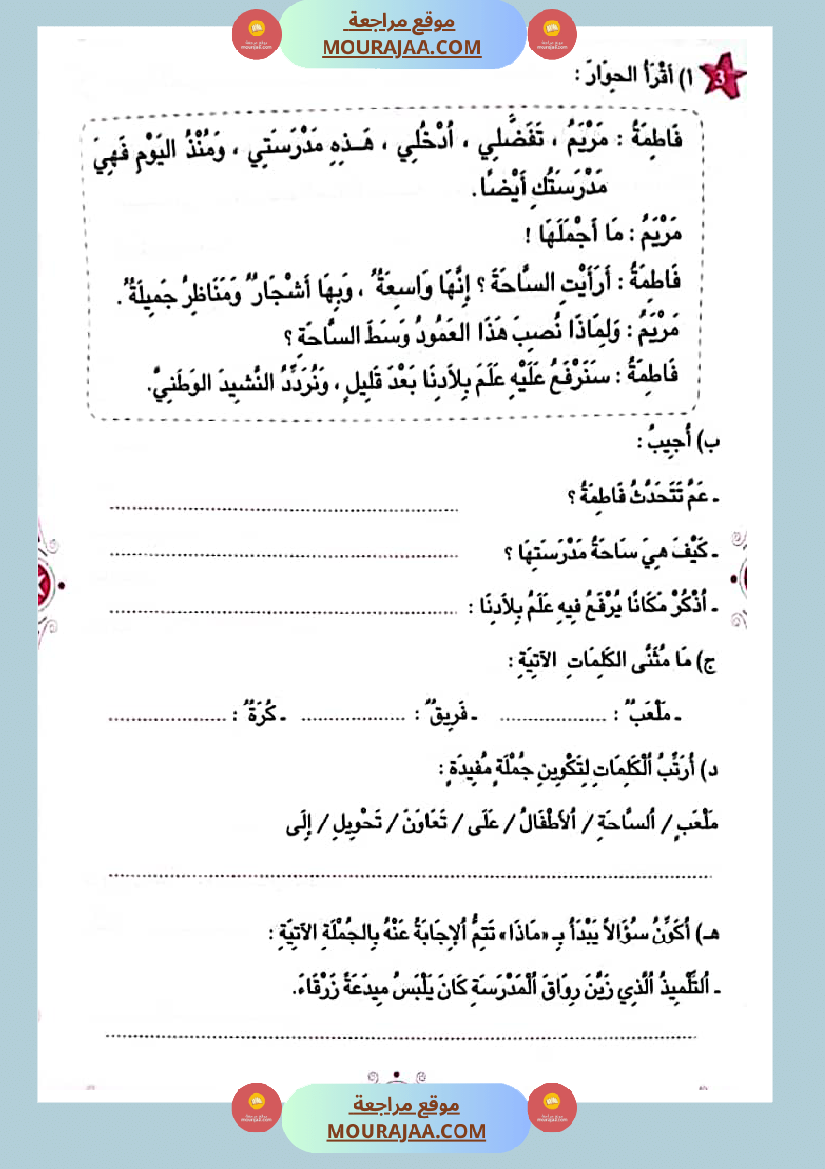 موقع مراجعة
MOURAJAA.COM
3 أ) أَقْرَأُ الحِوَارَ :
فَاطِمَةُ : مَرْيَمُ ، تَفَضَّلِي ، اُدْخُلِي ، هَـذِهِ مَدْرَسَتِي ، وَمُنْذُ اليَوْمِ فَهِيَ
مَدْرَسَتُكِ أَيْضًا.
مَرْيَمُ : مَا أَجْمَلَهَا !
فَاطِمَةُ : أَرَأَيْتِ السَّاحَةَ ؟ إِنَّهَا وَاسِعَةٌ ، وَبِهَا أَشْجَارٌ وَمَنَاظِرُ جَمِيلَةٌ.
مَرْيَمُ : وَلِمَاذَا نُصِبَ هَذَا العَمُودُ وَسَطَ السَّاحَةِ ؟
فَاطِمَةُ : سَنَرْفَعُ عَلَيْهِ عَلَمَ بِلاَدِنَا بَعْدَ قَلِيلٍ ، وَنُرَدِّدُ النَّشِيدَ الوَطَنِيَّ.
ب) أُجِيبُ :
- عَمَّ تَتَحَدَّثُ فَاطِمَةُ ؟
- كَيْفَ هِيَ سَاحَةُ مَدْرَسَتِهَا ؟
- اُذْكُرْ مَكَانًا يُرْفَعُ فِيهِ عَلَمُ بِلاَدِنَا :
ج) مَا مُثَنَّى الكَلِمَاتِ الآتِيَةِ :
- مَلْعَبٌ : - فَرِيقٌ : - كُرَةٌ :
د) أُرَتِّبُ اُلْكَلِمَاتِ لِتَكْوِينِ جُمْلَةٍ مُفِيدَةٍ :
مَلْعَبٍ / اُلسَّاحَةِ / اُلأَطْفَالُ / عَلَى / تَعَاوَنَ / تَحْوِيلِ / إِلَى
هـ) أُكَوِّنُ سُؤَالاً يَبْدَأُ بِـ «مَاذَا» تَتِمُّ اُلإِجَابَةُ عَنْهُ بِالجُمْلَةِ الآتِيَةِ :
- اُلتِّلْمِيذُ اُلَّذِي زَيَّنَ رِوَاقَ اُلْمَدْرَسَةِ كَانَ يَلْبَسُ مِيدَعَةً زَرْقَاءَ.
موقع مراجعة
MOURAJAA.COM